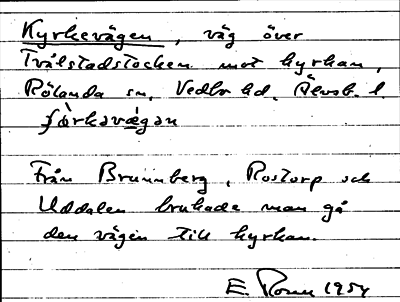 Kyrkevägen, väg över
Tvålstadstocken mot kyrkan,
Rölanda sn, Vedbo hd, Älvsb. l.
Från Brunnberg, Rostorp och
Uddalen brukade man gå
den vägen till kyrkan.
E. 1954